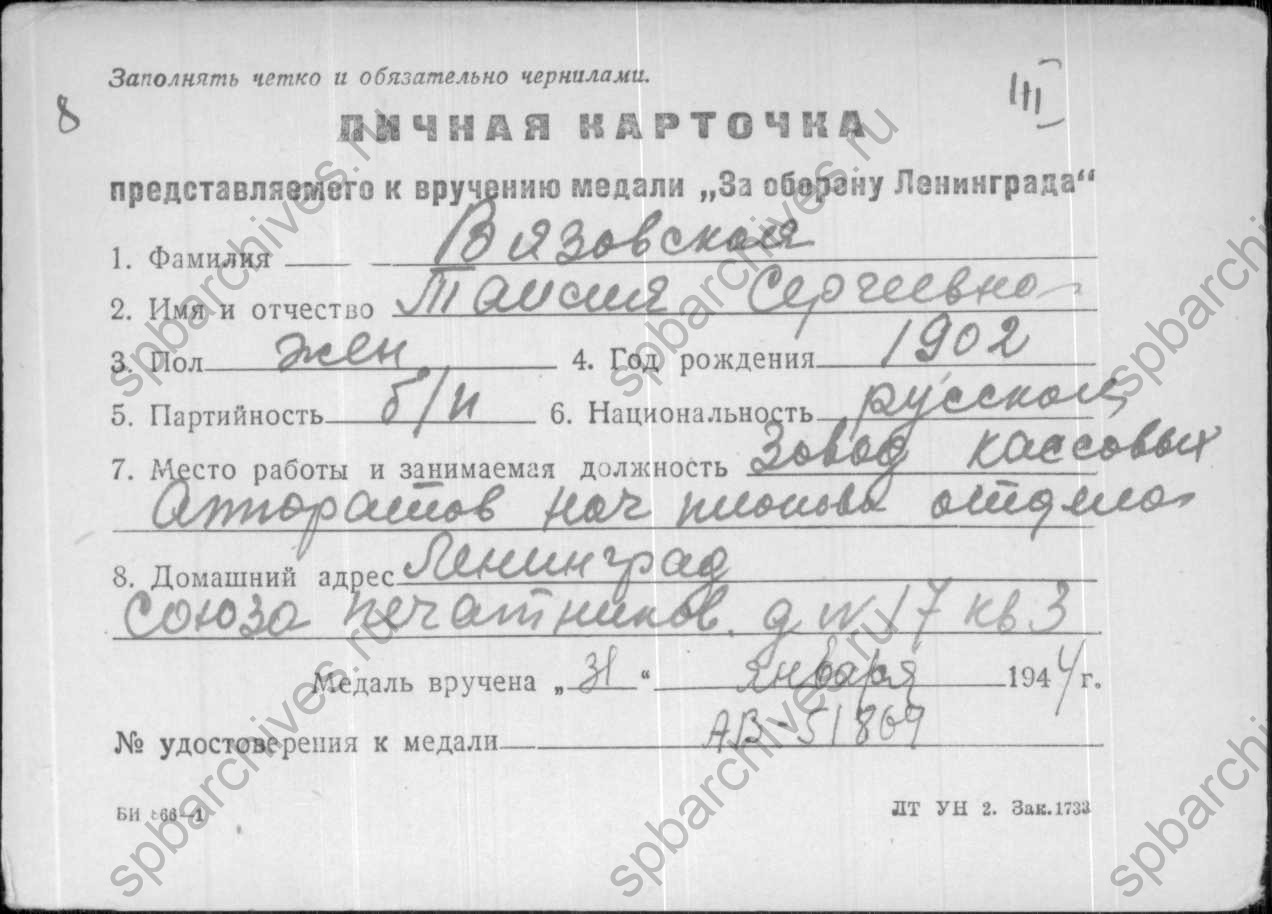 Заполнять четко и обязательно чернилами.
8
III
ЛИЧНАЯ КАРТОЧКА
представляемого к вручению медали „За оборону Ленинграда“
1. Фамилия Вязовская
2. Имя и отчество Таисия Сергеевна
3. Пол жен. 4. Год рождения 1902
5. Партийность б/п 6. Национальность русская
7. Место работы и занимаемая должность Завод кассовых
Аппаратов нач планово отдела
8. Домашний адрес Ленинград
Союза печатников д № 17 кв 3
Медаль вручена „31“ января 1944 г.
№ удостоверения к медали АВ-51869
БИ 66—1
ЛТ УН 2. Зак.1733
spbarchives.ru
spbarchives.ru
spbarchi
spbarchives.ru
spbarchives.ru
spbarchi